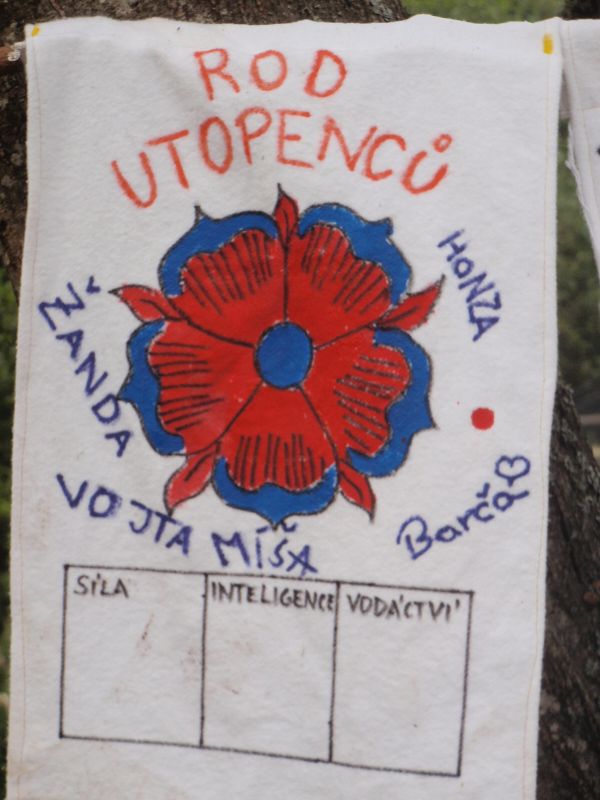 ROD
UTOPENCŮ
HONZA
ŽANDA
VOJTA
MÍŠA
Barča
SÍLA
INTELIGENCE
VODÁCTVÍ